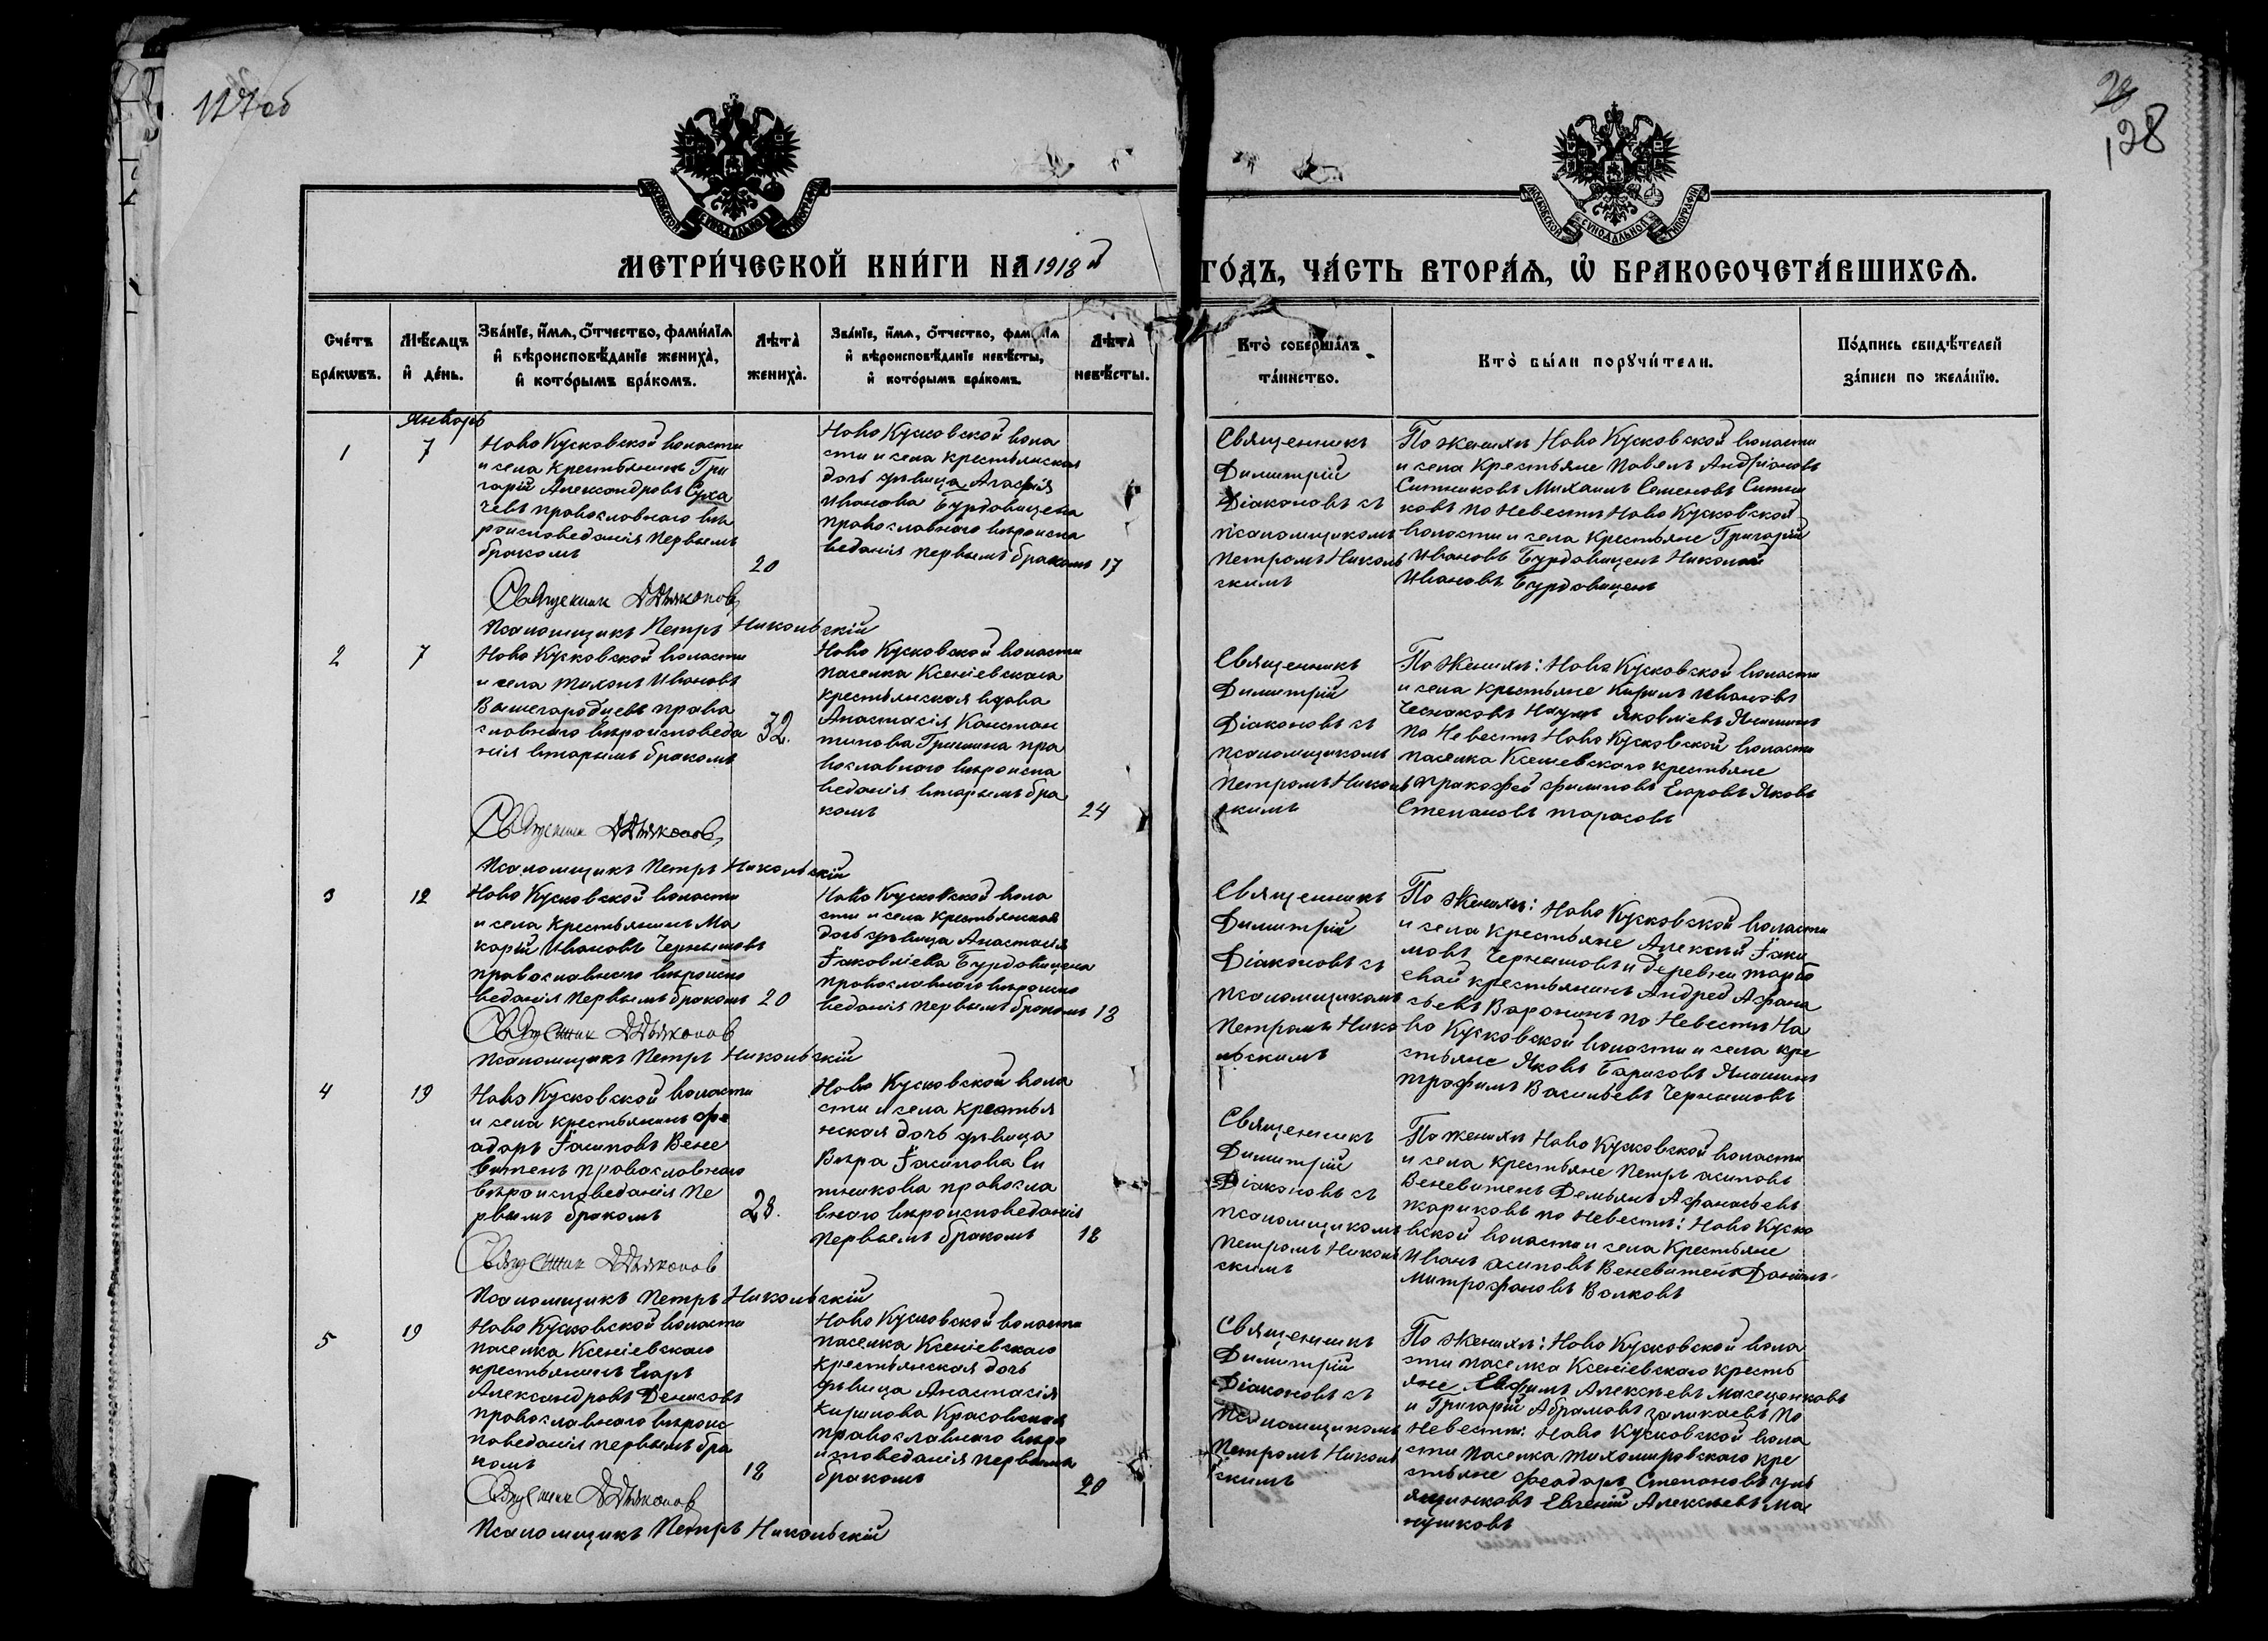 127об
28
128
МОСКОВСКОЙ СѴНОДАЛЬНОЙ ТИПОГРАФІИ
МОСКОВСКОЙ СѴНОДАЛЬНОЙ ТИПОГРАФІИ
МЕТРИ́ЧЕСКОЙ КНИ́ГИ НА 1918 й
ГО́ДЪ, ЧА́СТЬ ВТОРА́Ѧ, Ѡ҆ БРАКОСОЧЕТА́ВШИХСѦ.
Сче́тъ бра́кѡвъ.
Мѣ́сѧцъ и҆ де́нь.
Зва́нїе, и҆́мѧ, ѻ҆́тчество, фами́лїѧ и҆ вѣроисповѣ́данїе жениха̀, и҆ кото́рымъ бра́комъ.
Лѣта̀ жениха̀.
Зва́нїе, и҆́мѧ, ѻ҆́тчество, фами́лїѧ и҆ вѣроисповѣ́данїе невѣ́сты, и҆ кото́рымъ бра́комъ.
Лѣта̀ невѣ́сты.
Кто̀ соверша́лъ та́инство.
Кто̀ бы́ли порꙋчи́тели.
По́дпись свидѣ́телей за́писи по жела́нїю.
Январь
1
7
Ново Кусковской воласти
и села Крестьянинъ Гри
горій Александровъ Суха
чевъ православного вѣ
роисповеданія первымъ
бракомъ
20
Ново Кусковской вола
сти и села крестьянская
дочь дѣвица Агафія
Иванова Бурдовицена
православного вѣроиспа
веданія первымъ бракомъ
17
Священникъ
Димитрій
Діаконовъ съ
псаломщикомъ
Петромъ Николь
скимъ
По женихѣ Ново Кусковской воласти
и села Крестьяне Павелъ Андріановъ
Ситниковъ Михаилъ Семеновъ Ситни
ковъ по Невестѣ Ново Кусковской
воласти и села Крестьяне Григорій
Ивановъ Бурдовиценъ Николай
Ивановъ Бурдовиценъ
Священникъ Д Дьяконов
Псаломщикъ Петръ Никольскій
2
7
Ново Кусковской воласти
и села Тихонъ Ивановъ
Вышегородцевъ права
славного вѣроисповеда
нія вторымъ бракомъ
32.
Ново Кусковской воласти
паселка Ксеніевскаго
крестьянская вдова
Анастасія Констан
тинова Гришина пра
вославного вѣроиспа
веданія вторымъ бра
комъ
24
Священникъ
Димитрій
Діаконовъ съ
псаломщикомъ
Петромъ Николь
скимъ
По Женихѣ: Ново Кусковской воласти
и села крестьяне Кирилъ Ивановъ
Чесноковъ Наумъ Яковлевъ Яншинъ
по Невестѣ Ново Кусковской воласти
паселка Ксеніевскаго крестьяне
Пракофей Филиповъ Егоровъ Яковъ
Степановъ Тарасовъ
Священникъ Д Дьяконов
Псаломщикъ Петръ Никольскій
3
12
Ново Кусковской воласти
и села Крестьянинъ Ма
карій Ивановъ Чернышовъ
православного вѣроиспо
веданія первымъ бракомъ
20
Ново Кусковской вола
сти и села крестьянская
дочь дѣвица Анастасія
Іаковлева Бурдовицена
православного вѣроиспо
веданія первымъ бракомъ
18
Священникъ
Димитрій
Діаконовъ съ
псаломщикомъ
Петромъ Нико
льскимъ
По Женихѣ: Ново Кусковской воласти
и села крестьяне Алексѣй Іаки
мовъ Чернышовъ и деревни Тарбо
евой крестьянинъ Андрей Афана
сьевъ Воронинъ по Невестѣ Но
во Кусковской воласти и села кре
стьяне Яковъ Барисовъ Яншинъ
Трофимъ Васильевъ Чернышовъ
Священникъ Д Дьяконов
Псаломщикъ Петръ Никольскій
4
19
Ново Кусковской воласти
и села крестьянинъ Фе
адаръ Іасиповъ Вене
витенъ православного
вѣроисповеданія пе
рвымъ бракомъ
28.
Ново Кусковской вола
сти и села крестья
нская дочь дѣвица
Вѣра Іасипова Си
тникова провосла
вного вѣроисповеданія
первымъ бракомъ
18
Священникъ
Димитрій
Діаконовъ съ
псаломщикомъ
Петромъ Николь
скимъ
По женихѣ Ново Кусковской воласти
и села крестьяне Петръ асиповъ
Веневитенъ Демьянъ Афанасьевъ
Жариковъ по Невестѣ: Ново Куско
вской воласти и села Крестьяне
Иванъ асиповъ Веневитенъ Данилъ
Митрофановъ Волковъ
Священникъ Д Дьяконов
Псаломщикъ Петръ Никольскій
5
19
Ново Кусковской воласти
паселка Ксеніевскаго
крестьянинъ Егаръ
Александровъ Денисовъ
православнаго вѣроис
поведанія первымъ бра
комъ
18
Ново Кусковской воласти
паселка Ксеніевскаго
Крестьянская дочь
дѣвица Анастасія
Кирилова Красовская
православного вѣро
исповеданія первымъ
бракомъ
20
Священникъ
Димитрій
Діаконовъ съ
псаломщикомъ
Петромъ Николь
скимъ
По Женихѣ: Ново Кусковской вола
сти паселка Ксеніевскаго кресть
яне Ефимъ Алексѣевъ
и Григорій Абрамовъ по
Невестѣ: Ново Кусковской вола
сти паселка Тихомировскаго кре
стьяне Феадаръ Степановъ
Евгений Алексѣевъ Ма
Священникъ Д Дьяконов
Псаломщикъ Петръ Никольскій